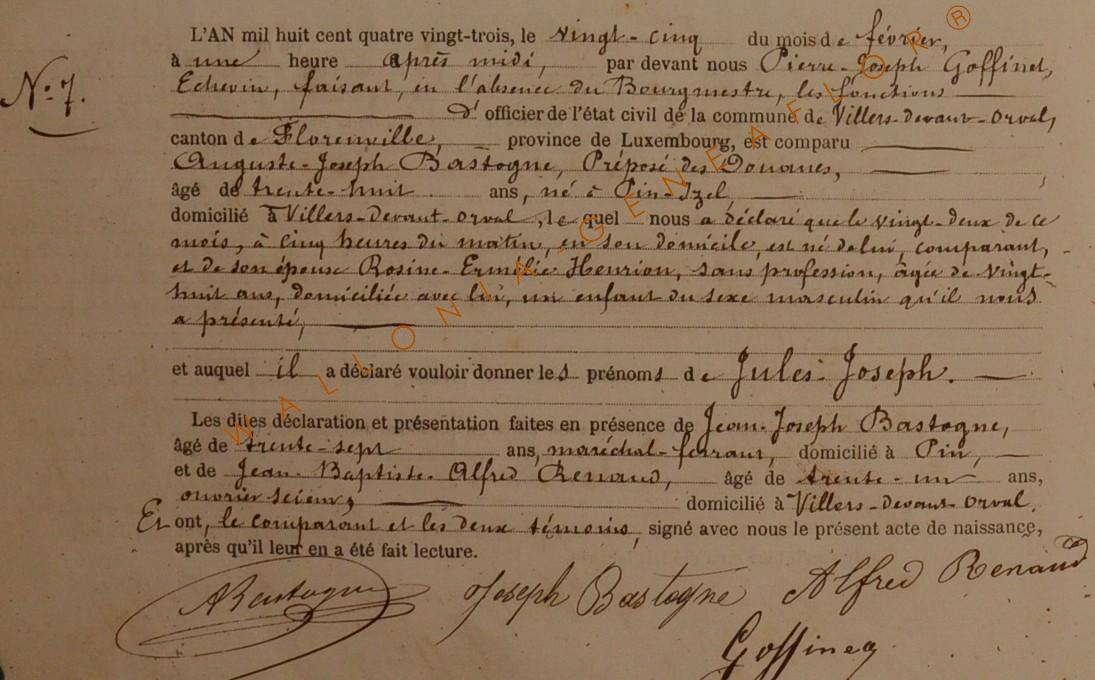 L'AN mil huit cent quatre vingt-trois, le vingt-cinq du mois de février,
N° 7.
à une heure après midi, par devant nous Pierre-Joseph Goffinet,
Echevin, faisant, en l'absence du Bourgmestre, les fonctions
d' officier de l'état civil de la commune de Villers-devant-Orval,
canton de Florenville, province de Luxembourg, est comparu
Auguste-Joseph Bastogne, Préposé des Douanes,
âgé de trente-huit ans, né à Pin-Izel,
domicilié à Villers-Devant-Orval, lequel nous a déclaré que le vingt-deux de ce
mois, à cinq heures du matin, en son domicile, est né de lui, comparant,
et de son épouse Rosine-Ermélie Henrion, sans profession, âgée de vingt-
huit ans, domiciliée avec lui, un enfant du sexe masculin qu'il nous
a présenté,
et auquel il a déclaré vouloir donner les prénoms de Jules-Joseph.
Les dites déclaration et présentation faites en présence de Jean-Joseph Bastogne,
âgé de trente-sept ans, maréchal-ferrant, domicilié à Pin,
et de Jean-Baptiste-Alfred Renaud, âgé de trente-un ans,
ouvrier scieur, domicilié à Villers-devant-Orval.
Et ont, le comparant et les deux témoins, signé avec nous le présent acte de naissance,
après qu'il leur en a été fait lecture.
ABastogne Joseph Bastogne Alfred Renaud
Goffinet
WALLONIA GENEAFLOR ®